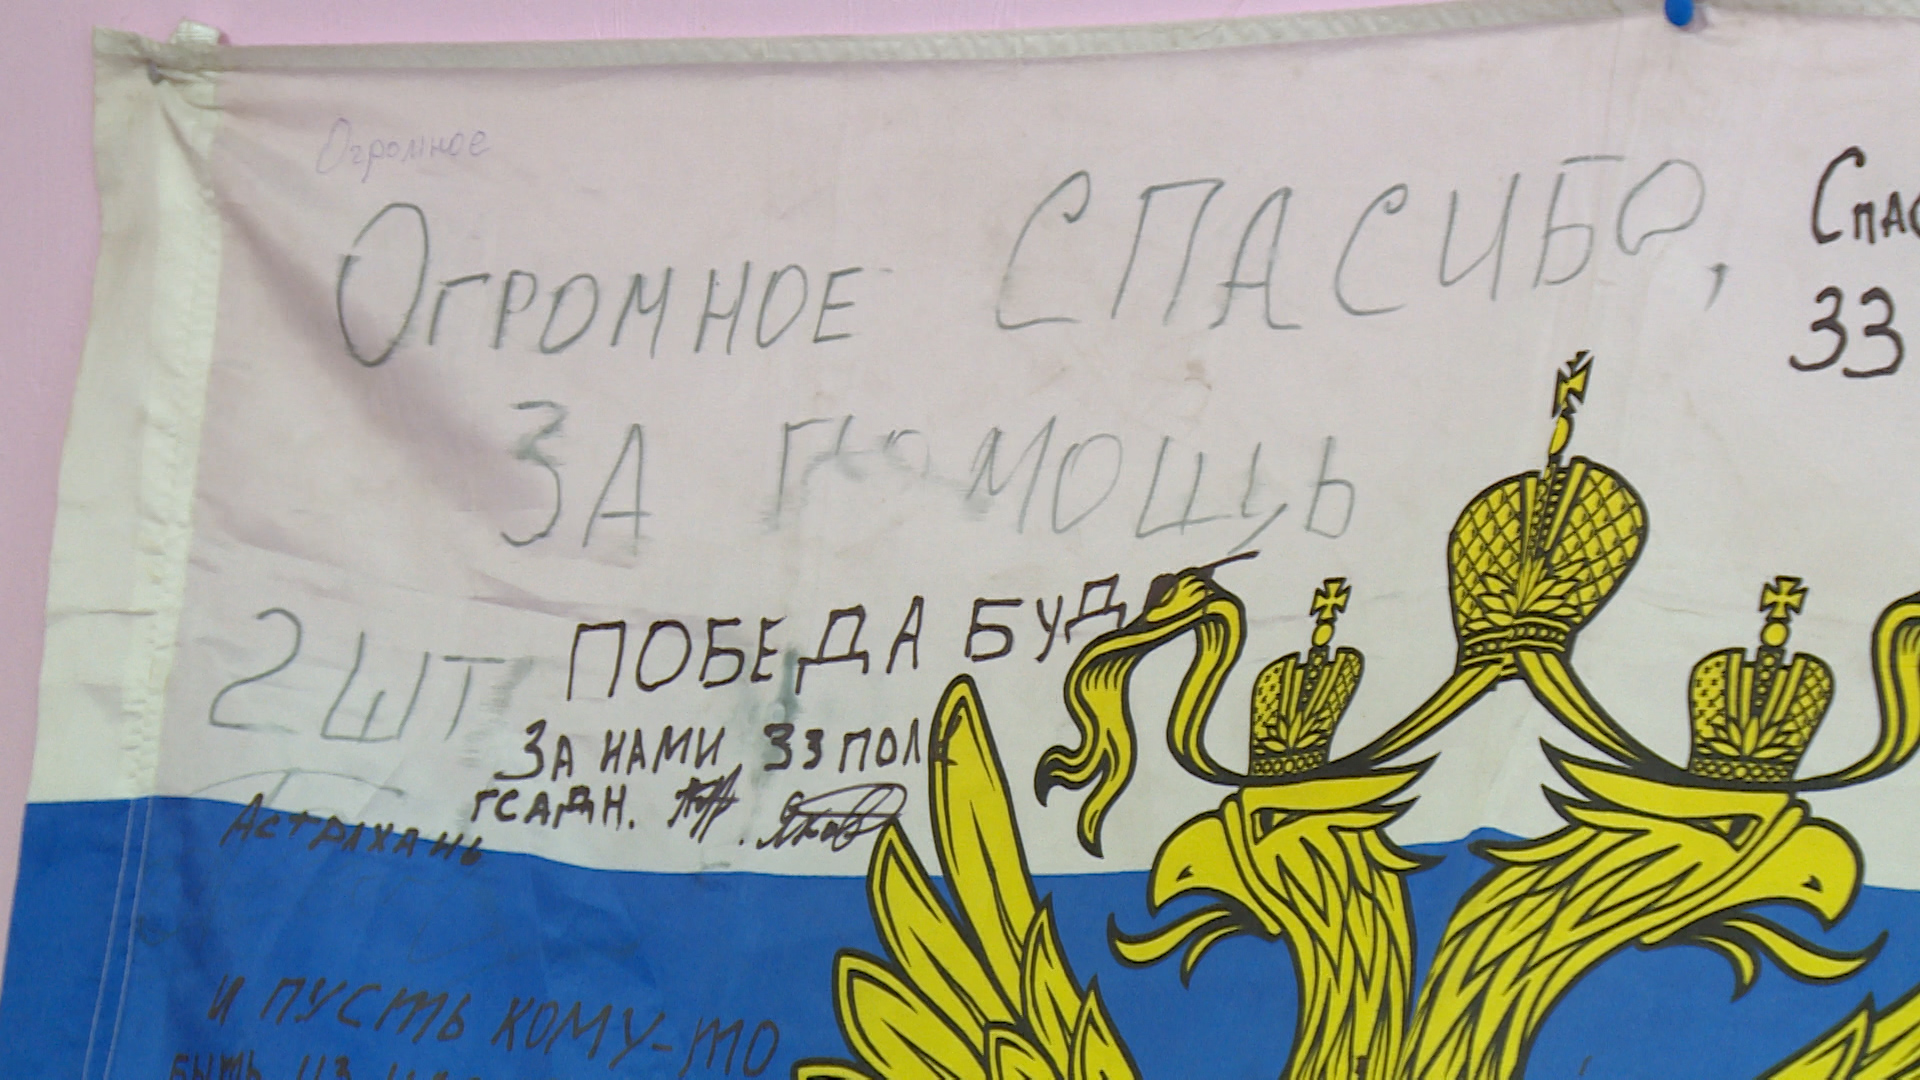 Огромное
ОГРОМНОЕ СПАСИБО,
ЗА ПОМОЩЬ
СПАС
33
2 ШТ
ПОБЕДА БУД
ЗА НАМИ 33 ПОЛ
ГСАДН.
АСТРАХАНЬ
И ПУСТЬ КОМУ-ТО
БЫТЬ ИЗ